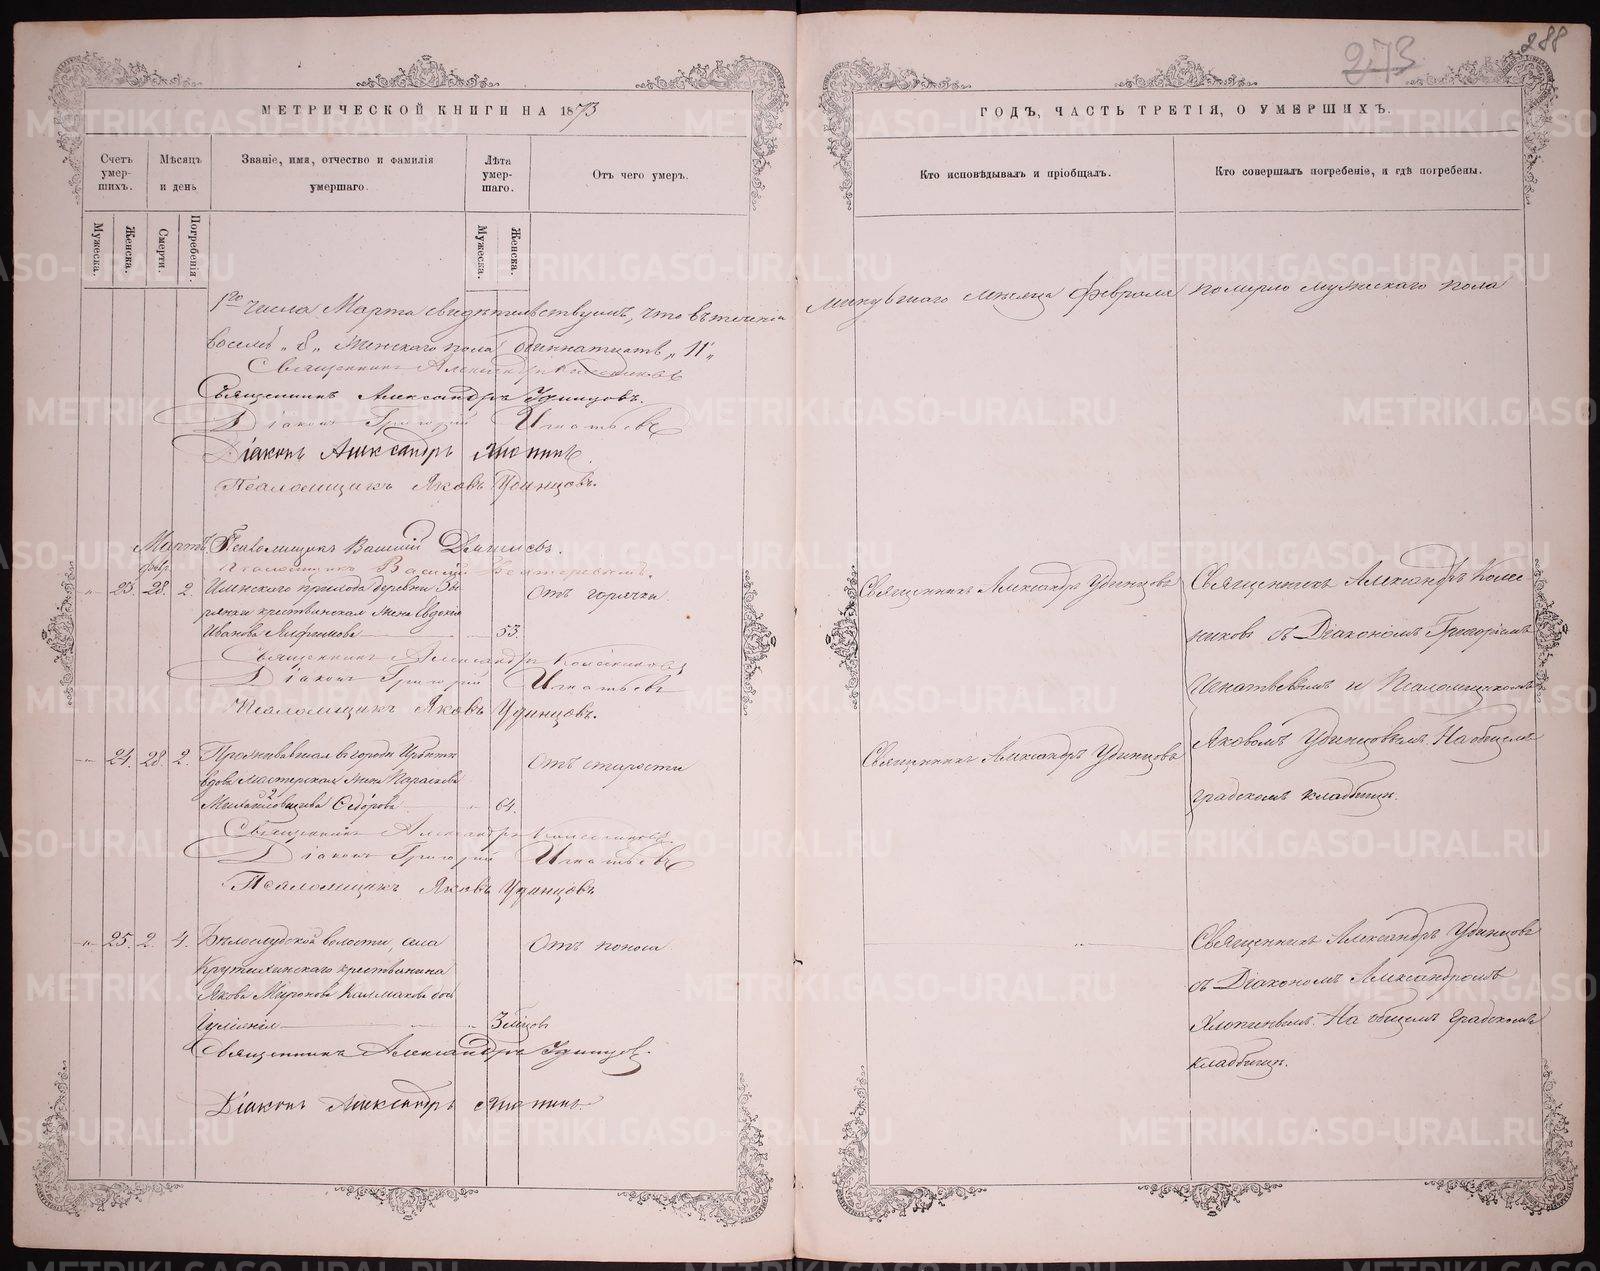 273
288
МЕТРИЧЕСКОЙ КНИГИ НА 1873
ГОДЪ, ЧАСТЬ ТРЕТІЯ, О УМЕРШИХЪ.
Счетъ умер-
шихъ.
Мѣсяцъ
и день
Званіе, имя, отчество и фамилія
умершаго.
Лѣта
умер-
шаго.
Отъ чего умеръ.
Кто исповѣдывалъ и пріобщалъ.
Кто совершалъ погребеніе, и гдѣ погребены.
Мужеска.
Женска.
Смерти.
Погребенія.
Мужеска.
Женска.
1го числа Марта свидѣтельствуемъ, что въ теченіи минувшаго мѣсяца февраля померло мужескаго пола
восемь „8„ женскаго пола одиннатцать „11„
Священникъ Александръ Колесниковъ
Священникъ Александръ Удинцовъ.
Діаконъ Григорій Игнатьевъ
Діаконъ Александръ Хлопинъ.
Псаломщикъ Яковъ Удинцовъ.
Мартъ. Псаломщикъ Василій
Псаломщикъ Василій
февр.
„ 23. 28. 2. прихода деревни
крестьянская жена Евдокія
Иванова 53.
Отъ горячки
Священникъ Александръ Удинцовъ
Священникъ Александръ Колес
никовъ съ Діакономъ Григоріемъ
Игнатьевымъ и Псаломщикомъ
Яковомъ Удинцовымъ. На общемъ
градскомъ кладбищѣ.
Священникъ Александръ Колесниковъ
Діаконъ Григорій Игнатьевъ
Псаломщикъ Яковъ Удинцовъ.
„ 24. 28. 2. Проживавшая въ городѣ Ирбити
вдова мастерская жена Параскева
Федорова 64.
Отъ старости
Священникъ Александръ Удинцовъ
Священникъ Александръ Колесниковъ
Діаконъ Григорій Игнатьевъ
Псаломщикъ Яковъ Удинцовъ
„ 25. 2. 4. Бѣлослудской волости, села
Крутихинскаго крестьянина
Якова Миронова Калмакова дочь
Іуліанія 3 мѣсцовъ
Отъ поноса
Священникъ Александръ Удинцовъ
съ Діакономъ Александромъ
Хлопинымъ. На общемъ градскомъ
кладбищѣ.
Священникъ Александръ Удинцовъ.
Діаконъ Александръ Хлопинъ.
METRIKI.GASO-URAL.RU